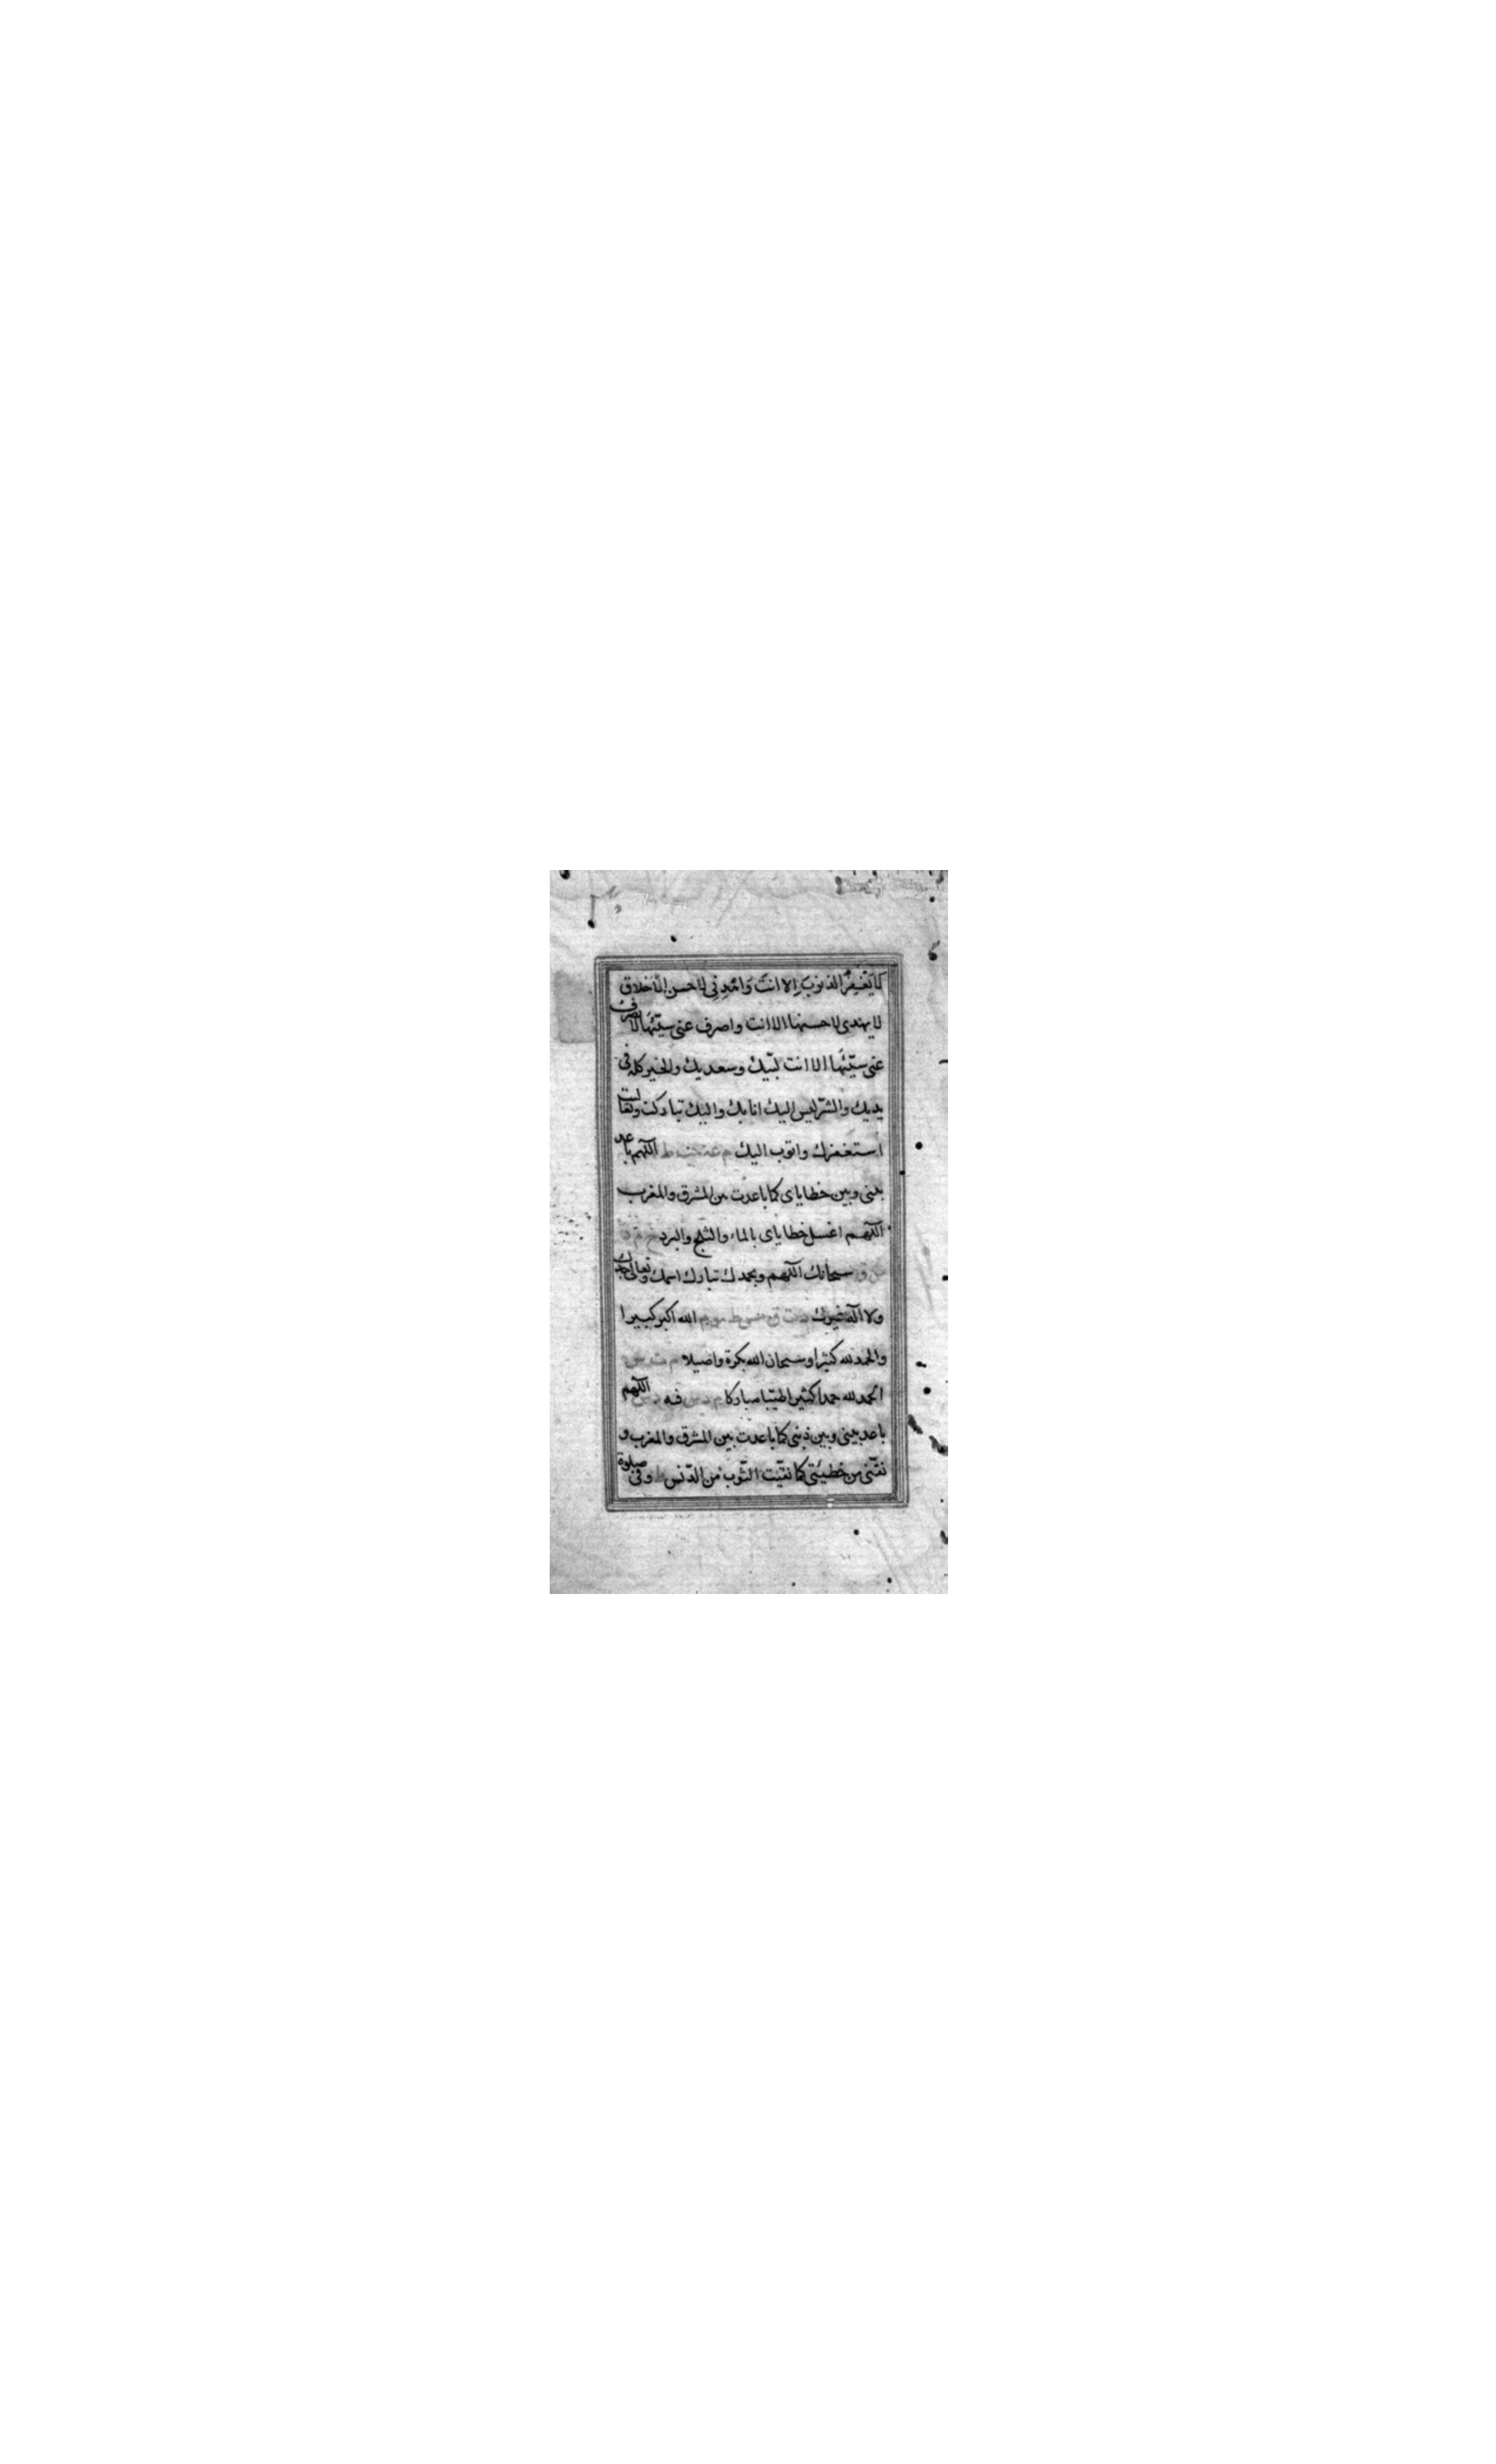 لا يَغْفِرُ الذنوبَ اِلا انتَ وَاهْدِنِى لاحسن الاخلاق
لا يهدى لاحسنها الا انت واصرف عنى سيّئها لا يصرف
عنى سيّئها الا انت لبّيك وسعديك والخير كله فى
يديك والشرّ ليس اليك انا بك واليك تباركت وتعاليت
استغفرك واتوب اليك م عه حب ط اللهم باعد
بينى وبين خطاياى كما باعدت بين المشرق والمغرب
اللهم اغسل خطاياى بالماء والثلج والبرد خ م د
س ق سبحانك اللهم وبحمدك تبارك اسمك وتعالى جدك
ولا اله غيرك د ت ق مس ط مو م الله اكبر كبيرا
والحمد لله كثيرا وسبحان الله بكرة واصيلا م ت س
الحمد لله حمدا كثيرا طيّبا مباركا فيه م د س اللهم
باعد بينى وبين ذنبى كما باعدت بين المشرق والمغرب و
نقّنى من خطيئتى كما نقّيت الثّوب من الدّنس ط وفى صلوة